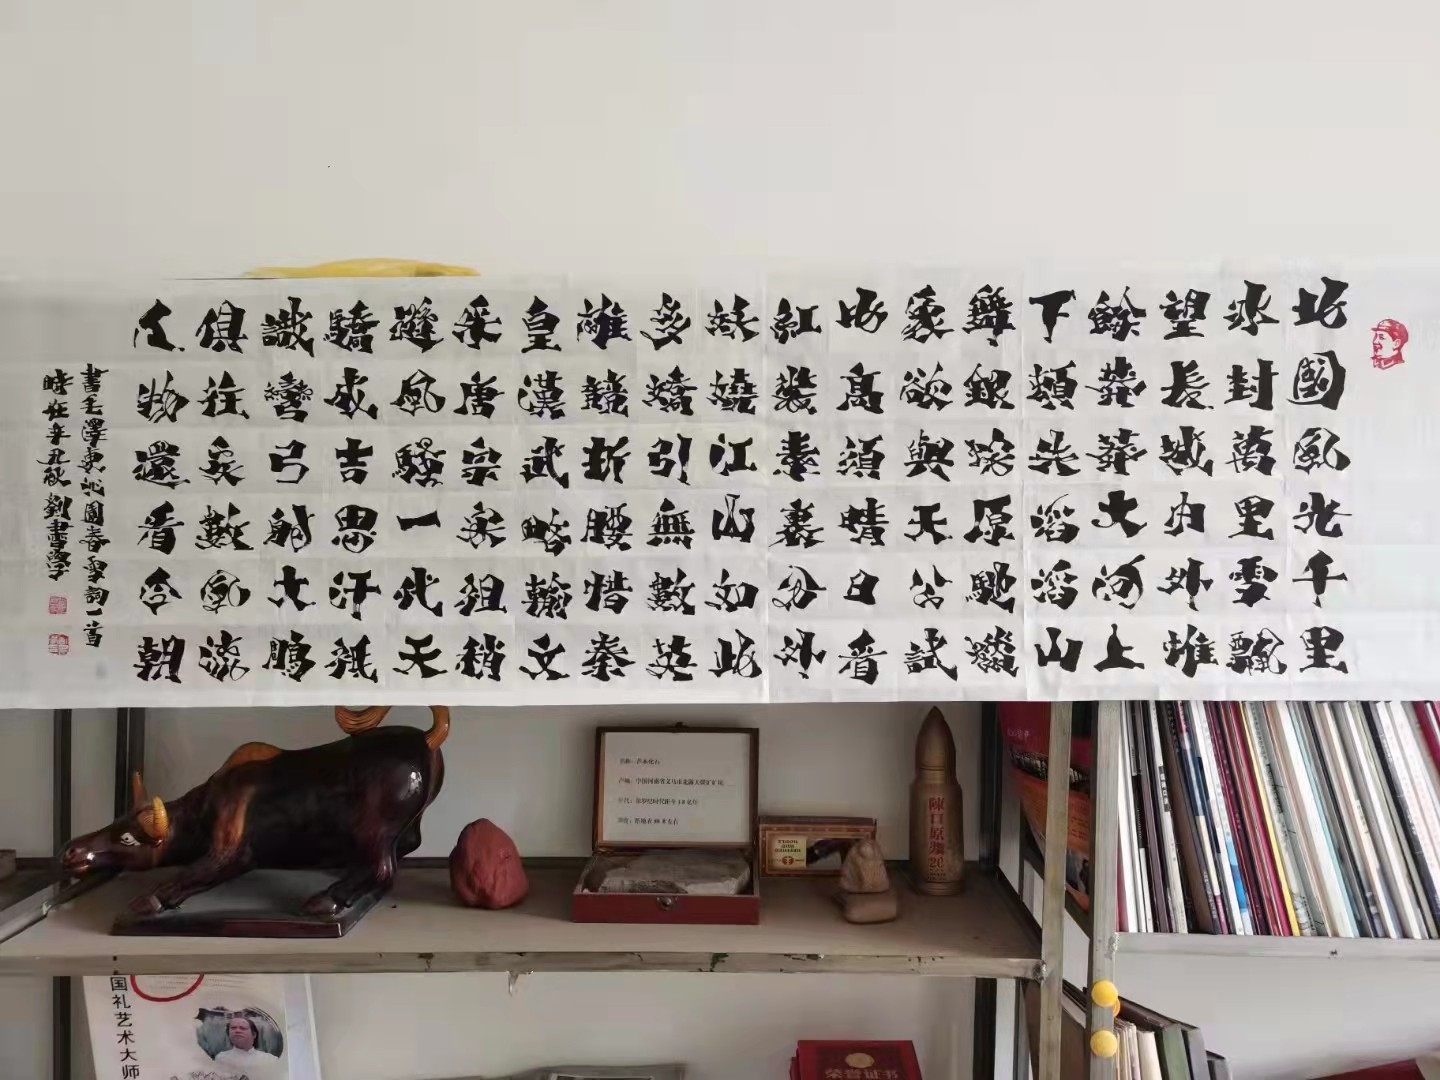 北國風光千里
冰封萬里雪飄
望長城内外惟
餘莽莽大河上
下頓失滔滔山
舞銀蛇原馳蠟
象欲與天公試
比高須晴日看
紅裝素裹分外
妖嬈江山如此
多嬌引無數英
雄競折腰惜秦
皇漢武略輸文
采唐宗宋祖稍
遜風騷一代天
驕成吉思汗祇
識彎弓射大鵰
俱往矣數風流
人物還看今朝
書毛澤東沁園春雪詞一首
時在辛丑秋劉書學
产地：中国河南省义马市北露天煤矿矿坑
陳口原漿
20
国礼艺术大师
荣誉证书